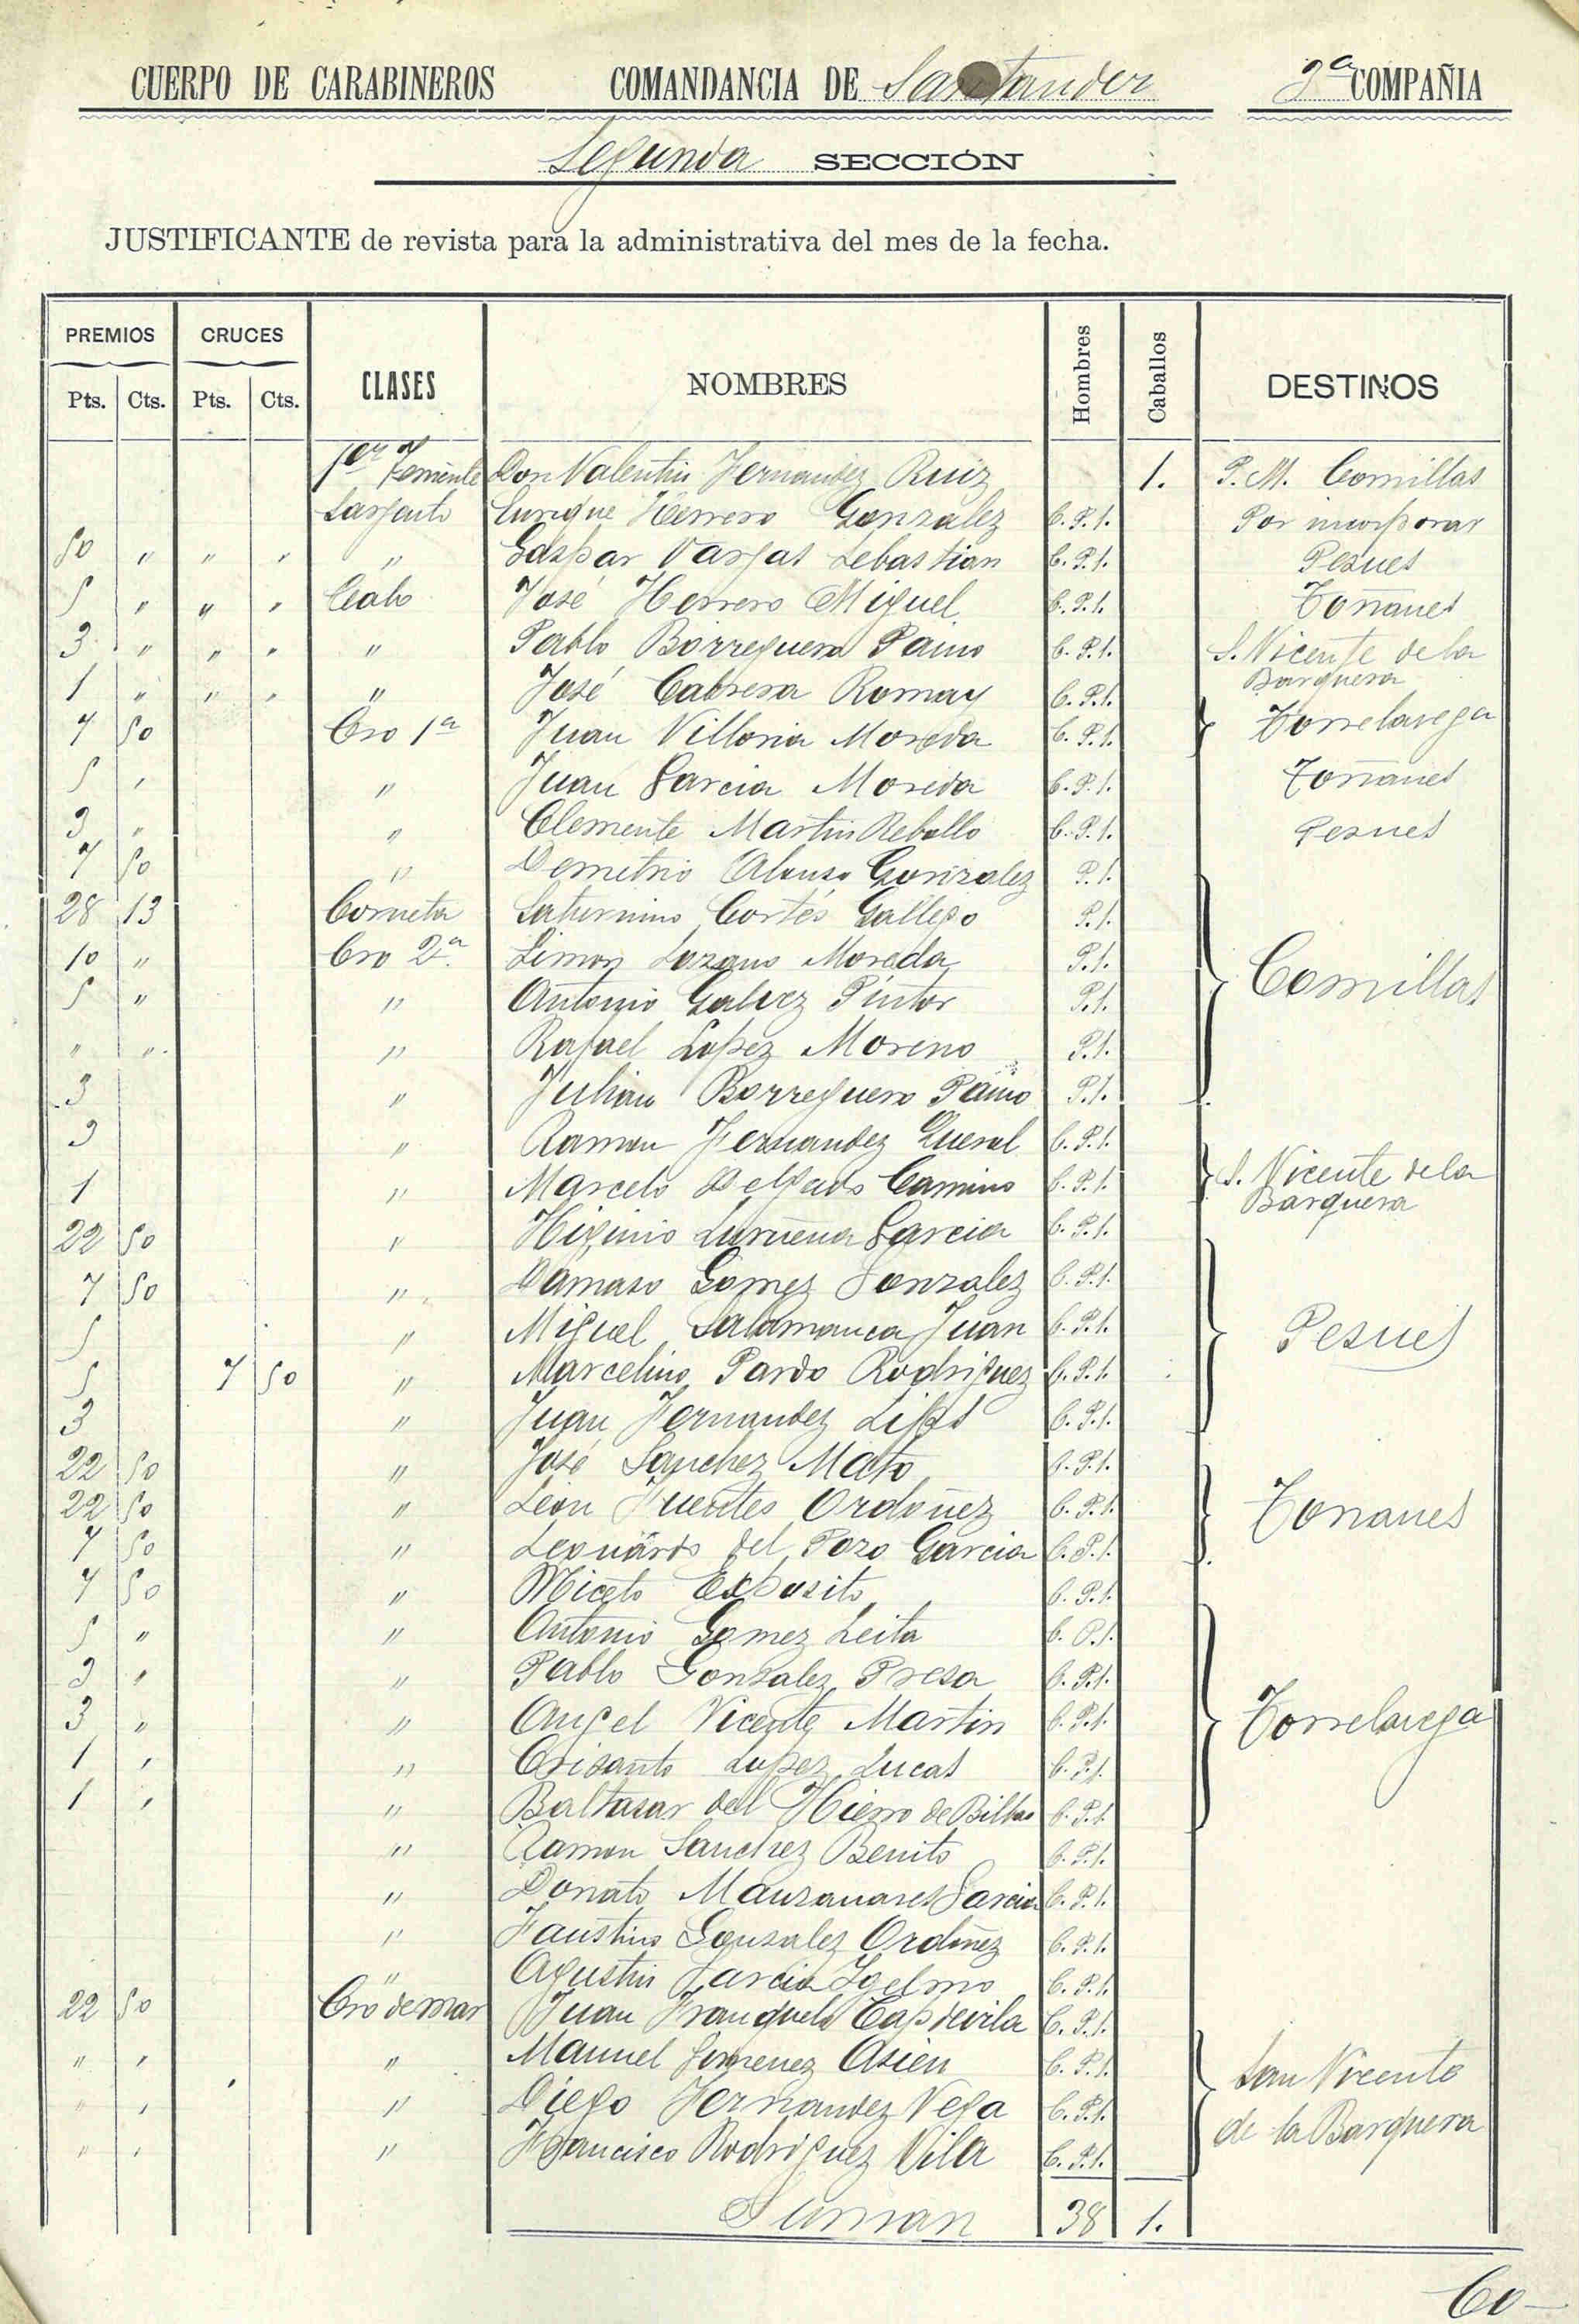 CUERPO DE CARABINEROS COMANDANCIA DE Santander 2ª COMPAÑIA
Segunda SECCIÓN
JUSTIFICANTE de revista para la administrativa del mes de la fecha.
PREMIOS CRUCES CLASES NOMBRES Hombres Caballos DESTINOS
Pts. Cts. Pts. Cts.
1er Teniente Don Valentin Fernandez Ruiz 1. P. M. Comillas
Sargento Enrique Herrero Gonzalez C. P. 1. Por incorporar
50 " " " " Gaspar Vargas Sebastian C. P. 1. Pesues
5 " " " Cabo José Herrero Miguel C. P. 1. Toñanes
3 " " " " Pablo Borreguero Paino C. P. 1. S. Vicente de la
Barquera
1 " " " " José Cabrera Romay C. P. 1.
7 50 Cro 1ª Juan Villoria Moreda C. P. 1. Torrelavega
5 " " Juan Garcia Moreda C. P. 1. Toñanes
3 " " Clemente Martin Rebollo C. P. 1. Pesues
7 50 " Demetrio Alonso Gonzalez P. 1.
28 13 Corneta Saturnino Cortés Gallego P. 1.
10 " Cro 2ª Simon Lozano Moreda P. 1. Comillas
5 " " Antonio Galvez Pintor P. 1.
" " " Rafael Lopez Moreno P. 1.
3 " Julian Borreguero Paino P. 1.
3 " Ramon Fernandez Queral C. P. 1.
1 " Marcelo Delgado Camino C. P. 1. S. Vicente de la
Barquera
22 50 " Higinio Lurueña Garcia C. P. 1.
7 50 " Damaso Gomez Gonzalez C. P. 1.
5 " Miguel Salamanca Juan C. P. 1. Pesues
5 7 50 " Marcelino Pardo Rodriguez C. P. 1.
3 " Juan Fernandez C. P. 1.
22 50 " José Sanchez Mato C. P. 1.
22 50 " Leon Fuentes Ordoñez C. P. 1. Toñanes
7 50 " Leonardo del Pozo Garcia C. P. 1.
7 50 " Niceto Exposito C. P. 1.
5 " " Antonio Gomez Leita C. P. 1.
3 " " Pablo Gonzalez Presa C. P. 1.
3 " " Angel Vicente Martin C. P. 1. Torrelavega
1 " " Crisanto Lopez Lucas C. P. 1.
1 " " Baltasar del Hierro de Bilbao C. P. 1.
" Ramon Sanchez Benito C. P. 1.
" Donato Manzanares Garcia C. P. 1.
" Faustino Gonzalez Ordoñez C. P. 1.
" Agustin Garcia Igelmo C. P. 1.
22 50 Cro de mar Juan Franquelo Capdevila C. P. 1.
" " " Manuel Gimenez Asien C. P. 1. San Vicente
" " " Diego Fernandez Vega C. P. 1. de la Barquera
" " " Francisco Rodriguez Vila C. P. 1.
Suman 38 1.
Co-